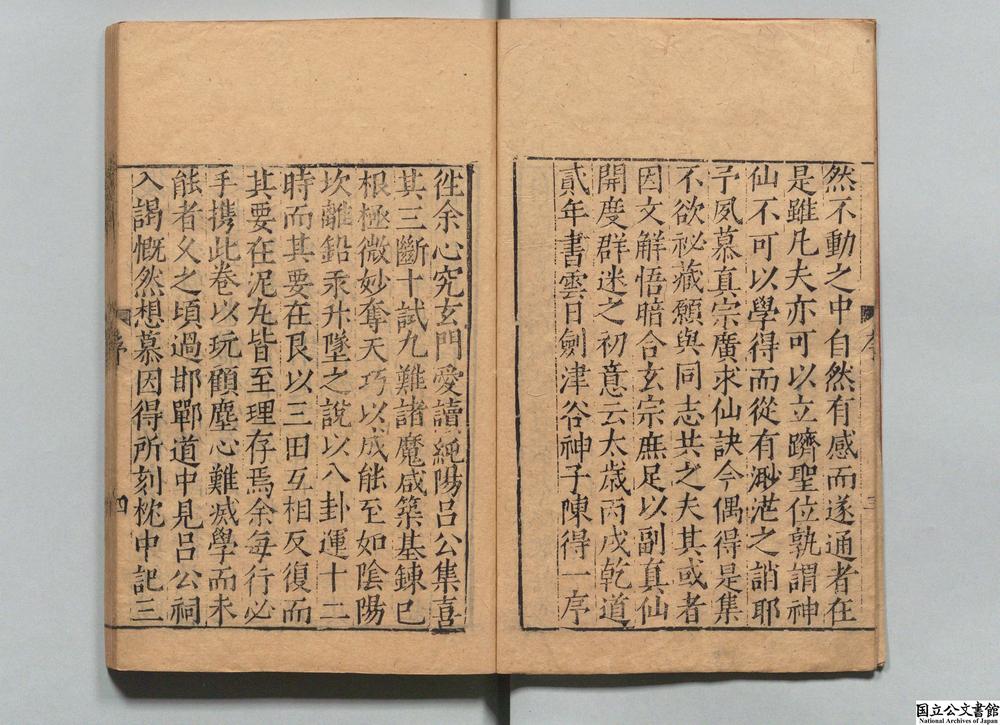 然不動之中自然有感而遂通者在
是雖凡夫亦可以立躋聖位孰謂神
仙不可以學得而從有渺茫之誚耶
予夙慕真宗廣求仙訣今偶得是集
不欲祕藏願與同志共之夫其或者
因文解悟暗合玄宗庶足以副真仙
開度群迷之初意云太歲丙戌乾道
貳年書雲日劍津谷神子陳得一序
序
三
徃余心究玄門愛讀純陽呂公集喜
其三斷十試九難諸魔咸築基鍊已
根極微妙奪天巧以成能至如陰陽
坎離鉛汞升墜之說以八卦運十二
時而其要在艮以三田互相反復而
其要在泥丸皆至理存焉余每行必
手携此卷以玩顧塵心難烕學而未
能者父之頃過邯鄲道中見呂公祠
入謁慨然想慕因得所刻枕中記三
序
四
国立公文書館
National Archives of Japan